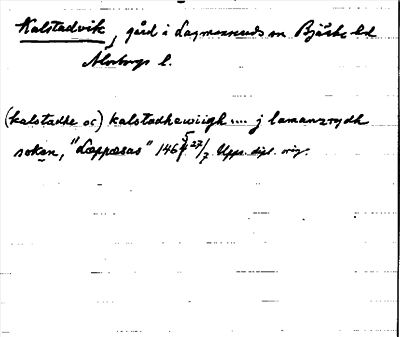 Kalstadvik, gård i Lagmansereds sn Bjärke hd
Älvsborgs l.
(kalstadhe oc) kalstadhawiigh .... j lamanzrydh
sokn, "Læppæsas" 1465 27/7 Upps. dipl. orig.